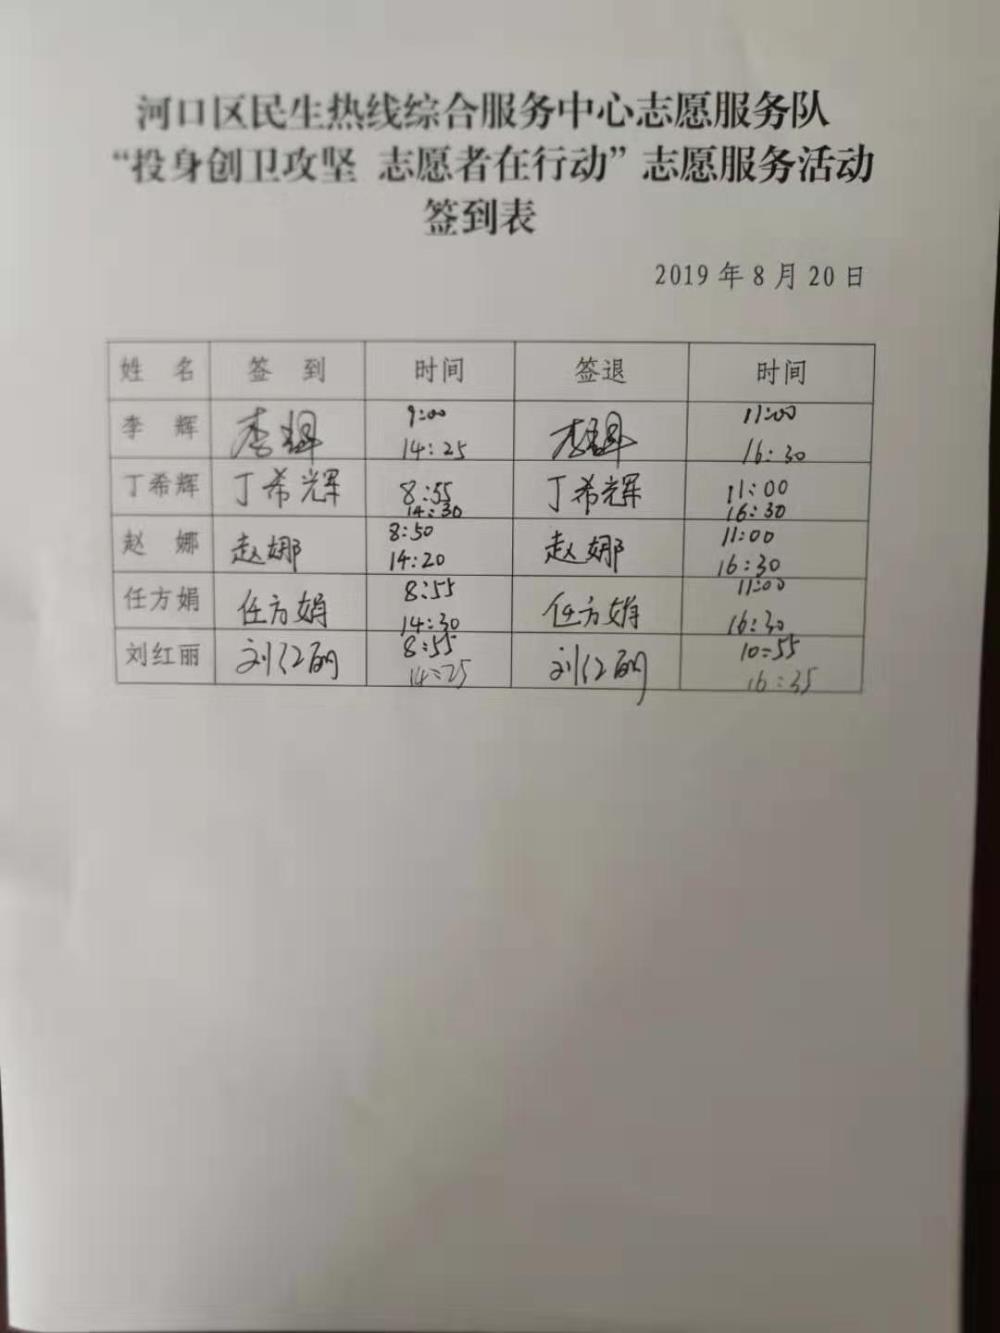 河口区民生热线综合服务中心志愿服务队
“投身创卫攻坚 志愿者在行动”志愿服务活动
签到表
2019年8月20日
姓 名 签 到 时间 签退 时间
李 辉 李辉 9:00 14:25 李辉 11:00 16:30
丁希辉 丁希辉 8:55 14:30 丁希辉 11:00 16:30
赵 娜 赵娜 8:50 14:20 赵娜 11:00 16:30
任方娟 任方娟 8:55 14:30 任方娟 11:00 16:30
刘红丽 刘红丽 8:55 14:25 刘红丽 10:55 16:35